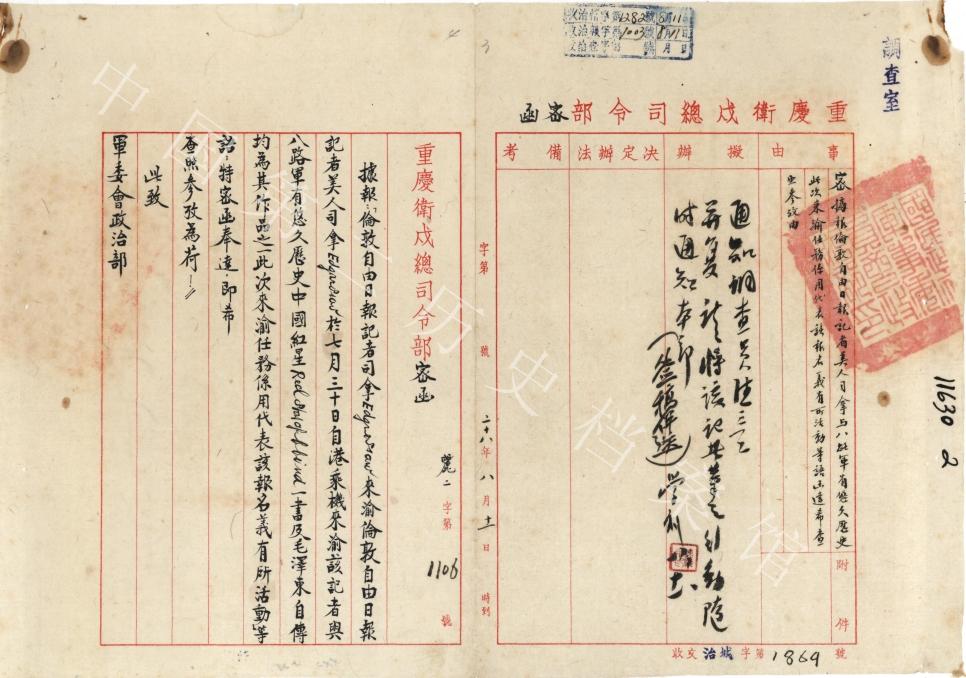 調查室
收治情字第1282號8月11日
收治報字第1003號8月11日
重慶衛戍總司令部密函
事由
擬辦
決定辦法
備考
密 據報倫敦自由日報記者美人司拿與八路軍有悠久歷史
此次來渝任務係用代表該報名義有所活動等語函達希查
照參攷由
附件
時通知本部
號
收文治城字第1869
11630 2
字第 號 二十八年八月十一日 時到
重慶衛戍總司令部密函
麗二字第1106號
據報:倫敦自由日報記者司拿Edgar Snow來渝倫敦自由日報
記者美人司拿Edgar Snow於七月三十日自港乘機來渝該記者與
八路軍有悠久歷史中國紅星Red Star of China一書及毛澤東自傳
均為其作品之一此次來渝任務係用代表該報名義有所活動」等
語;特密函奉達,即希
查照參攷為荷!
此致
軍委會政治部
中国第二历史档案馆